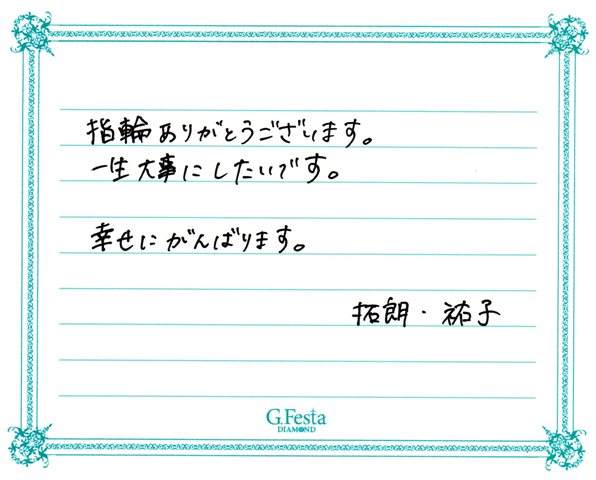 指輪ありがとうございます。
一生大事にしたいです。
幸せにがんばります。
拓朗・祐子
G.Festa
DIAMOND